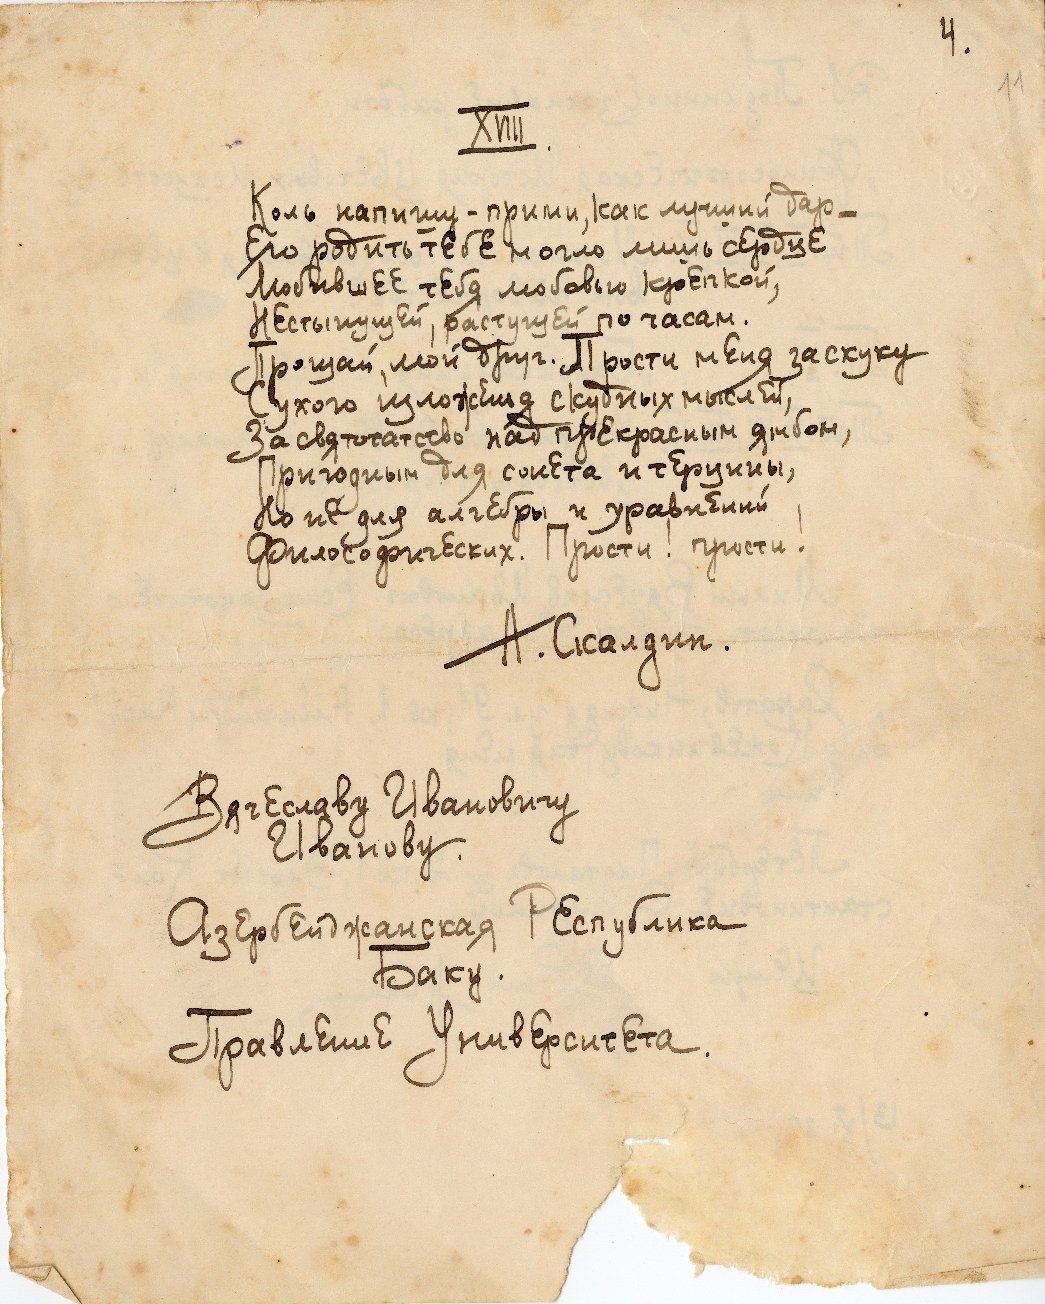 4.
11
XVIII.
Коль напишу - прими, как лучший дар -
Его родить тебе могло лишь сердце
Любившее тебя любовью крепкой,
Нестынущей, растущей по часам.
Прощай, мой друг. Прости меня за скуку
Сухого изложенья скудных мыслей,
За святотатство над прекрасным ямбом,
Пригодным для сонета и терцины,
Но не для алгебры и уравнений
Философических. Прости! прости!
А. Скалдин.
Вячеславу Ивановичу
Иванову.
Азербейджанская Республика
Баку.
Правление Университета.